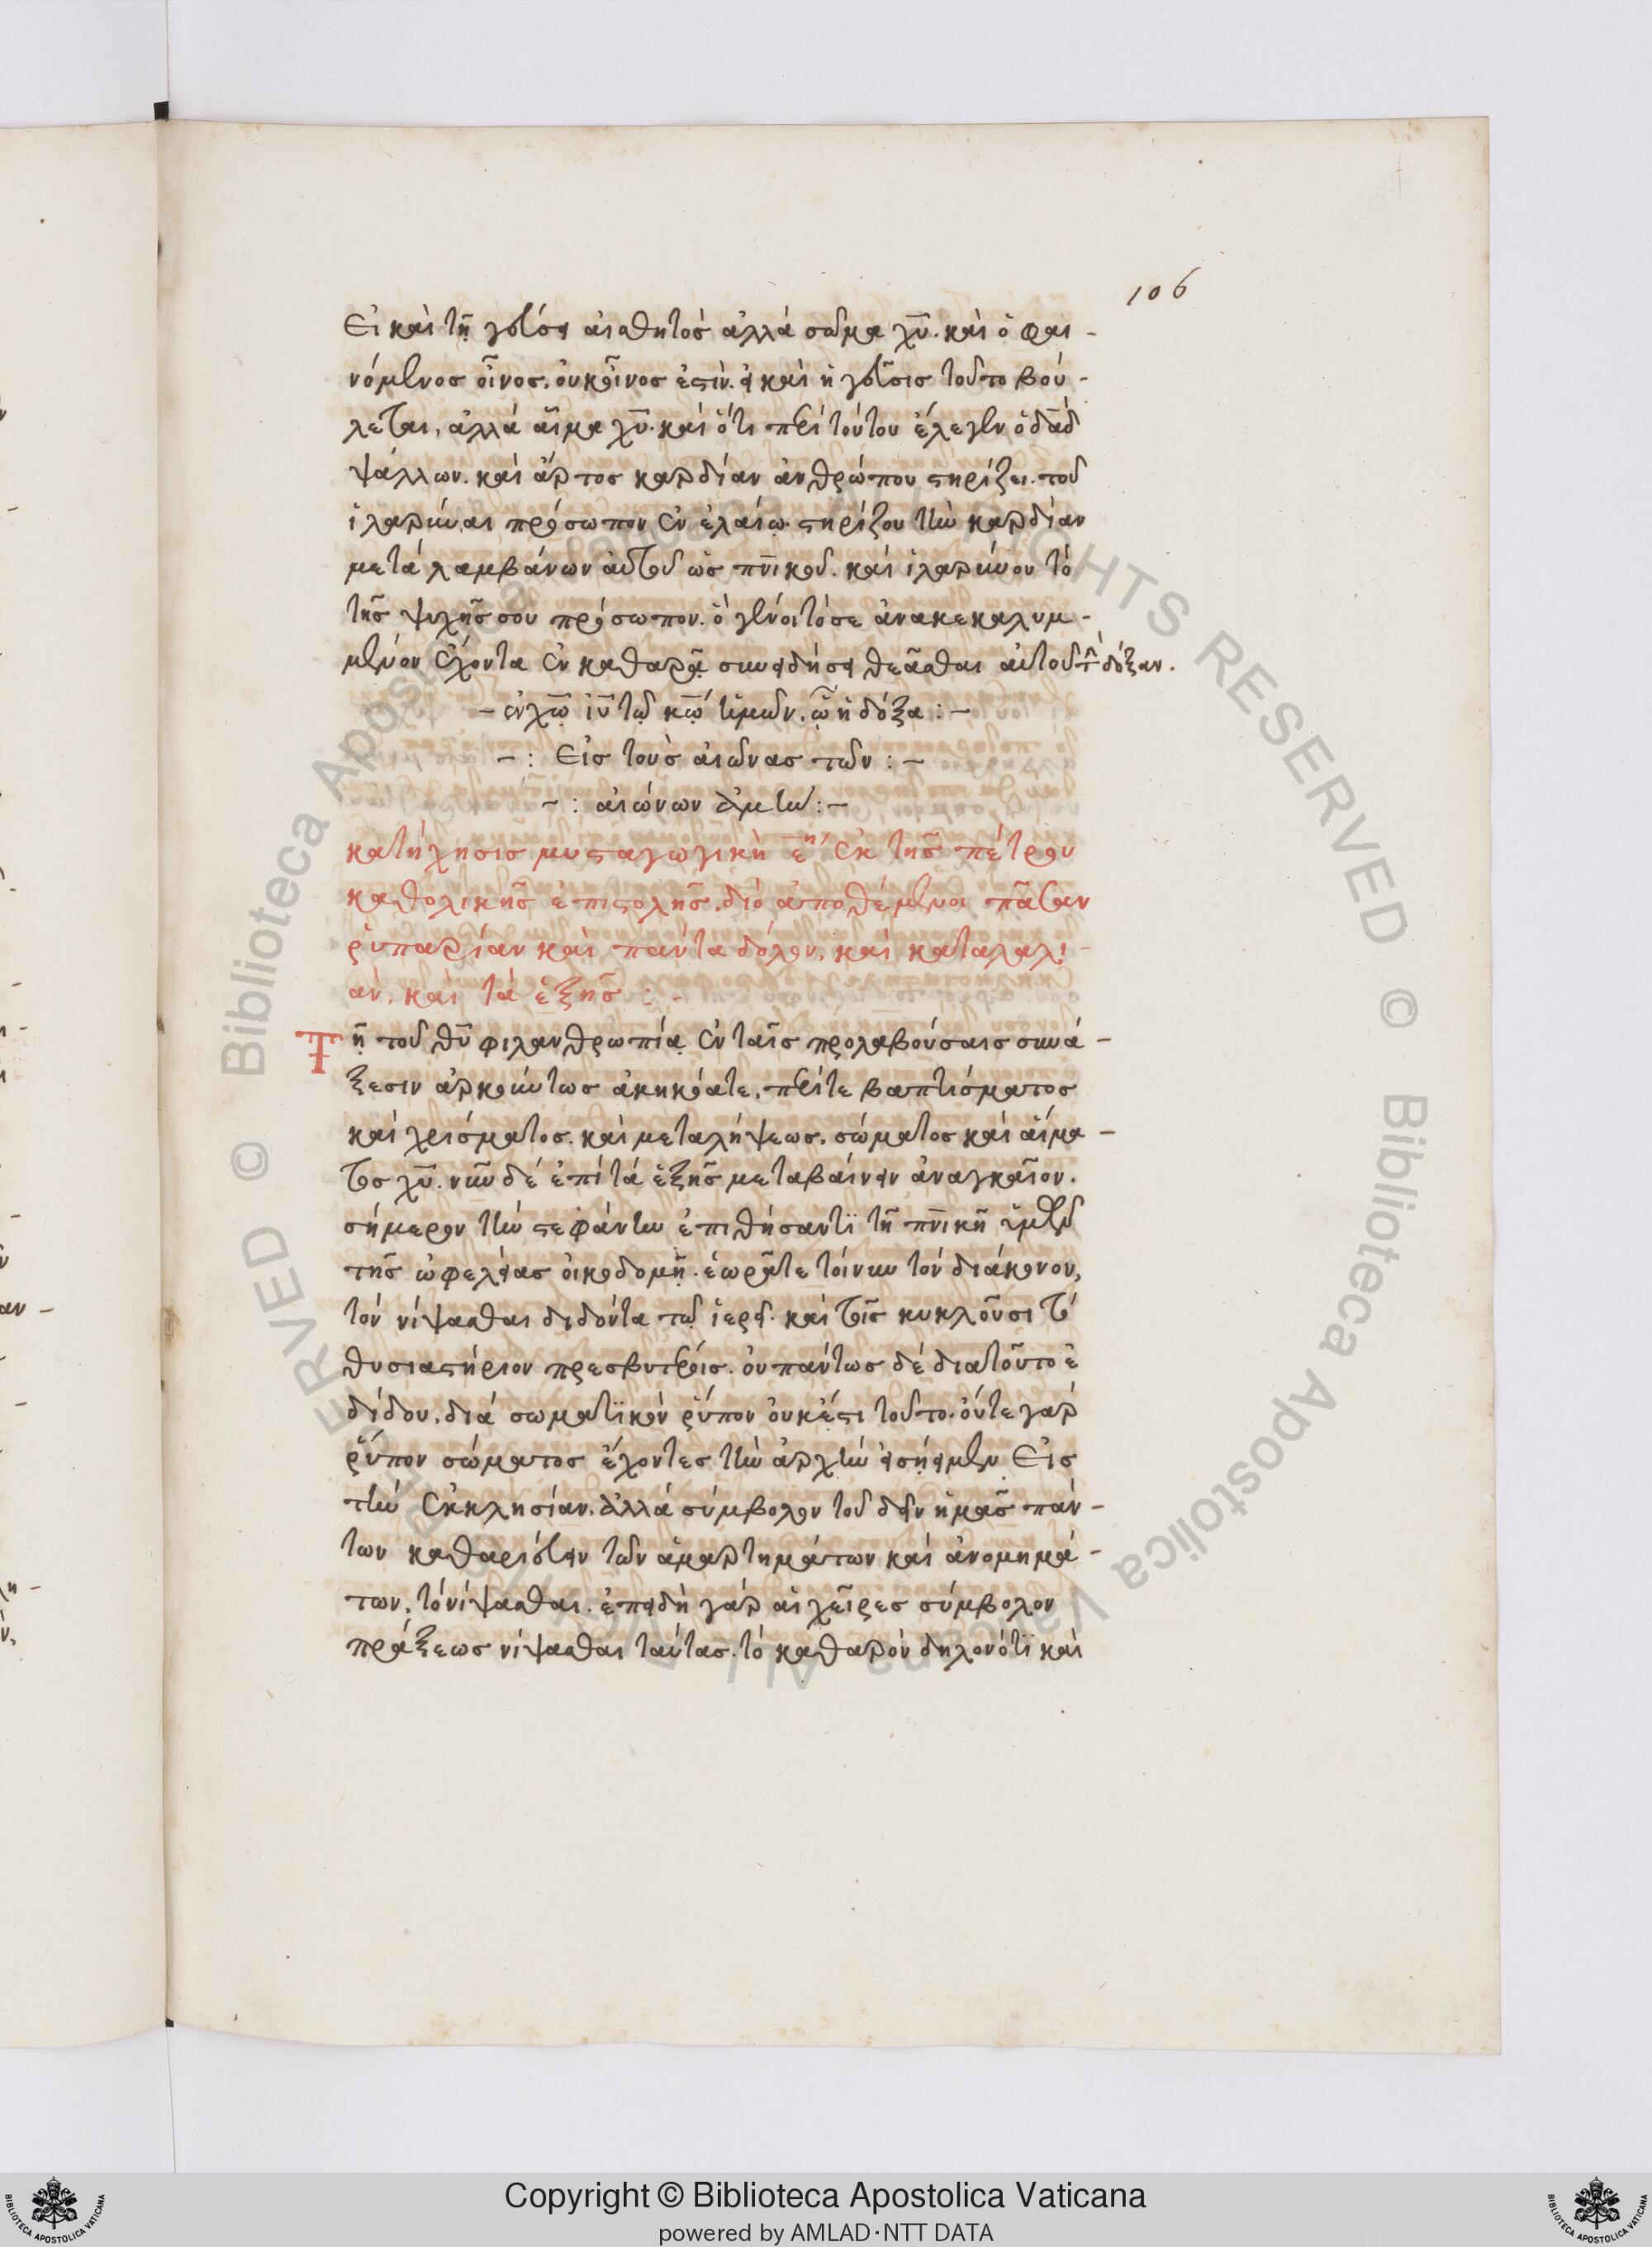 106
εἰ καὶ τῆ γεύσει αἰσθητὸς ἀλλὰ σῶμα χ̅υ̅. καὶ ὁ φαι-
νόμενος οἶνος, οὐκ οἶνος ἐστὶν. εἰ καὶ ἡ γεῦσις τοῦτο βού-
λεται, ἀλλὰ αἷμα χ̅υ̅. καὶ ὅτι περὶ τούτου ἔλεγεν ὁ δ̅α̅δ̅
ψάλλων. καὶ ἄρτος καρδίαν ἀνθρώπου στηρίζει. τοῦ
ἱλαρύναι πρόσωπον ἐν ἐλαίῳ. στηρίζου τὴν καρδίαν
μεταλαμβάνων αὐτοῦ ὡς π̅ν̅ικοῦ. καὶ ἱλαρύνου τὸ
τῆς ψυχῆς σου πρόσωπον. ὃ γένοιτό σε ἀνακεκαλυμ-
μένον ἔχοντα ἐν καθαρᾷ συνειδήσει θεᾶσθαι αὐτοῦ τὴν δόξαν.
- ἐν χ̅ω̅ ι̅υ̅ τῷ κ̅ω̅ ἡμῶν. ᾧ ἡ δόξα : -
- : εἰς τοὺς αἰῶνας τῶν : -
- : αἰώνων ἀμήν : -
κατήχησις μυσταγωγικὴ ε̅η ἐκ τῆς πέτρου
καθολικῆς ἐπιστολῆς. διὸ ἀποθέμενοι πᾶσαν
ῥυπαρίαν καὶ πάντα δόλον, καὶ καταλαλι-
ὰν, καὶ τὰ ἑξῆς : -
Τῆ τοῦ θ̅υ̅ φιλανθρωπίᾳ ἐν ταῖς προλαβούσαις συνά-
ξεσιν ἀρκούντως ἀκηκόατε, περί τε βαπτίσματος
καὶ χρίσματος. καὶ μεταλήψεως, σώματος καὶ αἵμα-
τος χ̅υ̅. νῦν δὲ ἐπὶ τὰ ἑξῆς μεταβαίνειν ἀναγκαῖον.
σήμερον τὴν στεφάνην ἐπιθήσαντϊ τῆ π̅ν̅ικῆ ὑμῶν
τῆς ὠφελείας οἰκοδομῆ. ἑωρᾶτε τοίνυν τὸν διάκονον,
τὸν νίψασθαι διδόντα τῷ ἱερεῖ. καὶ τοῖς κυκλοῦσι τὸ
θυσιαστήριον πρεσβυτέροις. οὐ πάντως δὲ διατοῦτο ἐ
δίδου, διὰ σωματϊκὸν ῥύπον οὐκ ἔστι τοῦτο. οὔτε γὰρ
ῥύπον σώματος ἔχοντες τὴν ἀρχὴν εἰσήειμεν εἰς
τὴν ἐκκλησίαν. ἀλλὰ σύμβολον τοῦ δεῖν ἡμᾶς πάν-
των καθαρίσειν τῶν ἁμαρτημάτων καὶ ἀνομημά-
των, τὸ νίψασθαι. ἐπειδὴ γὰρ αἱ χεῖρες σύμβολον
πράξεως νίψασθαι ταύτας. τὸ καθαρὸν δηλονότϊ καὶ